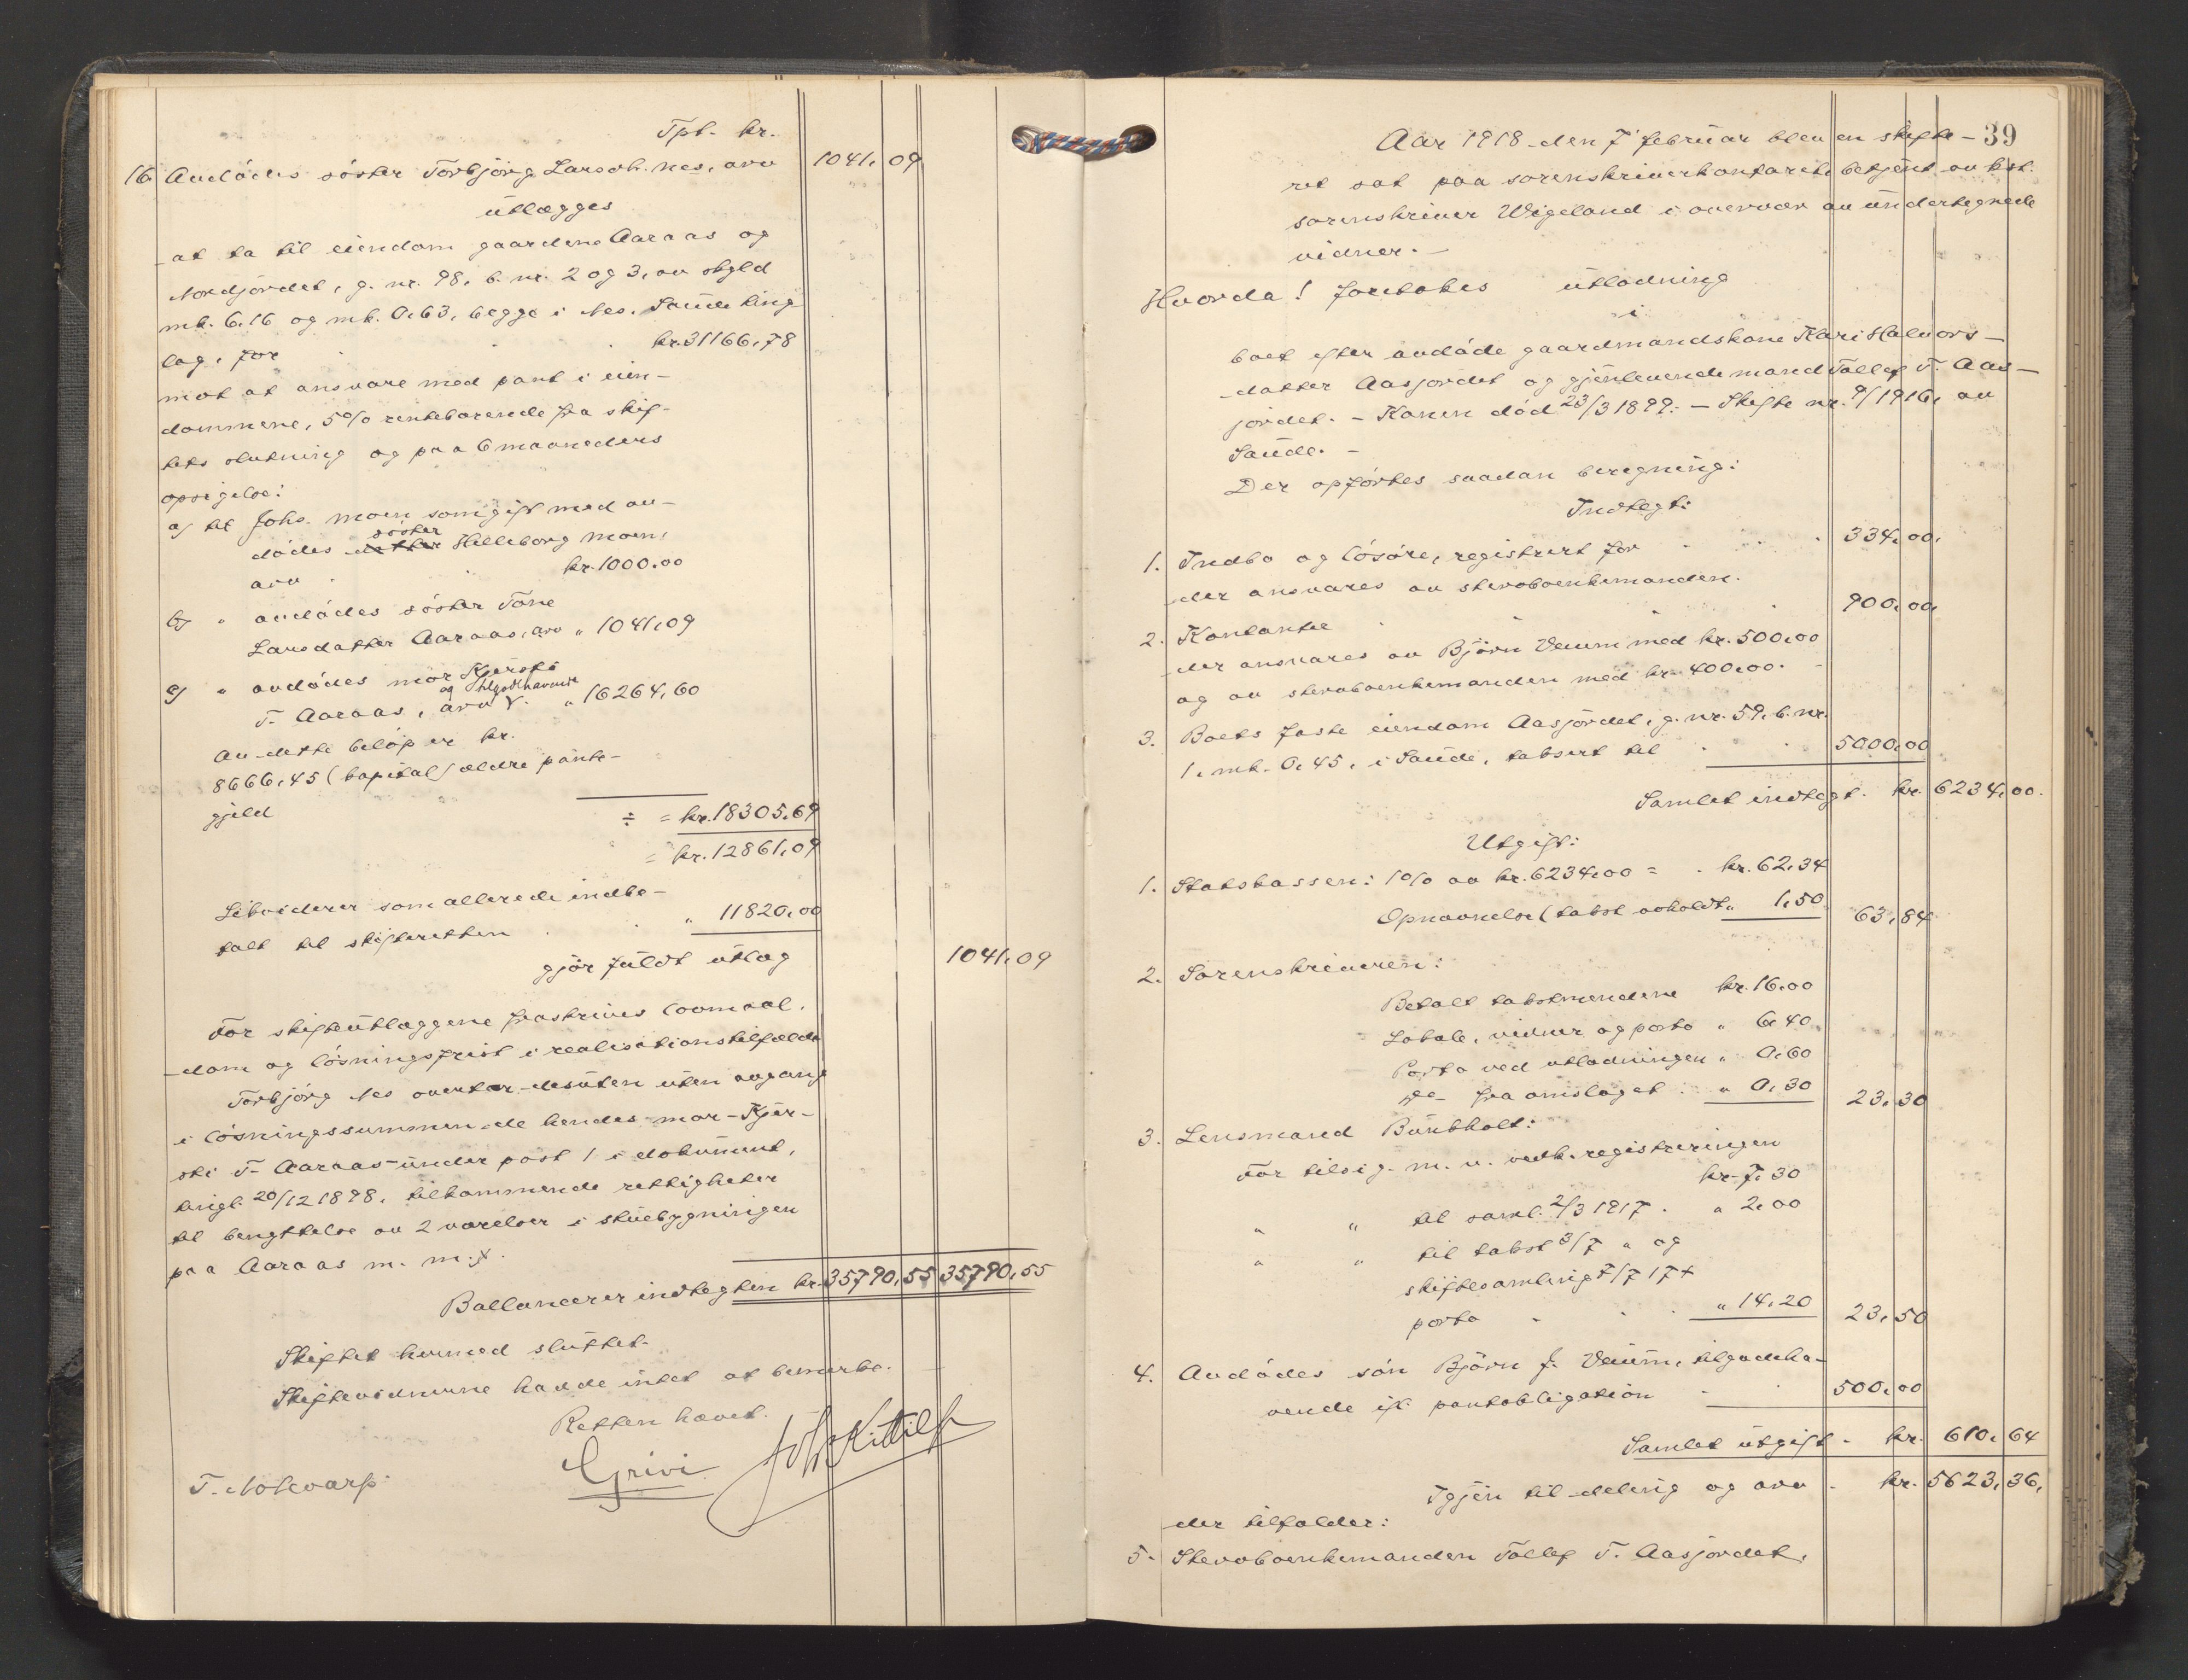 Tpt. kr.
16. Avdødes søster Torbjørg Larsdtr. Nes, arv 1041,09
utlægges
at ta til eiendom gaardene Aaraas og
Nordjordet, g. nr. 98, b. nr. 2 og 3, av skyld
mk. 6,16 og mk. 0,63, begge i Nes, Saude ting
lag, for kr. 31166,78
mot at ansvare med pant i eien-
dommene, 5 % rentebærende fra skif-
tets slutning og paa 6 maaneders
opsigelse:
a) til Johs. Moen som gift med av-
dødes datter søster Helleborg Moen,
arv kr. 1000.00
b) " avdødes søster Tone
Larsdatter Aaraas, arv " 1041,09
c) " avdødes mor Kjersti
T. Aaraas, arv og tilgodehavende " 16264,60
Av dette beløp er kr.
8666,45 (kapital) ældre pante-
gjeld
÷ = kr. 18305,69
= kr. 12861,09
Likviderer som allerede indbe-
talt til skifteretten " 11820,00
gjør fuldt utlæg 1041,09
For skifteutlæggene fraskrives lovmaal,
dom og løsningsfrist i realisationstilfælde
Torbjørg Nes overtar desuten uten avgang
i løsningssummen de hendes mor Kjer-
sti T. Aaraas under post 1 i dokument,
tingl. 20/12 1898, tilkommende rettigheter
til benyttelse av 2 værelser i stuebygningen
paa Aaraas m. m.
Ballancerer indtegten kr. 35790,55 35790,55
Skiftet hermed sluttet.
Skiftevidnerne hadde intet at bemerke.
Retten hævet.
T. Nokvarp. Grivi Joh Kittils
39
Aar 1918 den 7 februar blev en skifte-
ret sat paa sorenskriverkontoret betjent av kst.
sorenskriver Wigeland i overvær av undertegnede
vidner. -
Hvorda! foretokes utlodning
i
boet efter avdøde gaardmandskone Kari Halvors-
datter Aasjordet og gjenlevende mand Tollef T. Aas-
jordet. - Konen død 23/3 1899. - Skifte nr. 9/1916, av
Saude. -
Der opførtes saadan beregning:
Indtegt:
1. Indbo og løsøre, registrert for 334,00,
der ansvares av stervboenkemanden.
2. Kontanter 900,00,
der ansvares av Bjørn Venum med kr. 500,00
og av stervboenkemanden med kr. 400,00. -
3. Boets faste eiendom Aasjordet, g. nr. 59, b. nr.
1, mk. 0,45, i Saude, taksert til 5000,00
Samlet indtegt. kr. 6234,00.
Utgift:
1. Statskassen: 1 % av kr. 6234,00 = kr. 62,34
Opnævnelse (takst avholdt " 1,50 63,84
2. Sorenskriveren:
Betalt takstmændene kr. 16,00
Lokale, vidner og porto " 6,40
Porto ved utlodningen " 0,60
do fra omslaget " 0,30 23,30
3. Lensmand Bunkholt:
For tilsig. m. v. vedk. registreringen
kr. 7,30
" " til saml. 2/3 1917 " 2,00
" " til takst 3/7 " og
skiftesamling 7/7 17 +
porto " 14,20 23,50
4. Avdødes søn Bjørn J. Venum, tilgodeha-
vende ifl. pantobligation 500,00
Samlet utgift - kr. 610,64
Igjen til deling og arv - kr. 5623,36,
der tilfalder:
5. Stervboenkemanden Tollef T. Aasjordet,